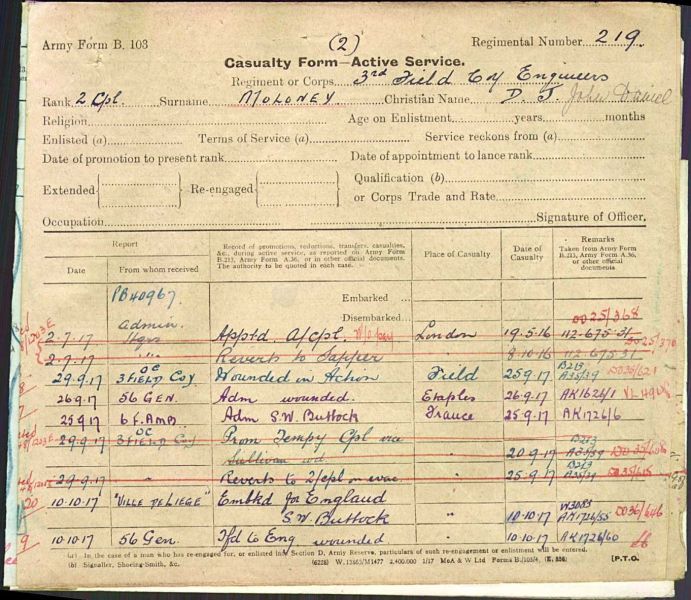 Army Form B. 103
(2)
Regimental Number 219
Casualty Form—Active Service.
Regiment or Corps 3rd Field Coy Engineers
Rank 2 Cpl. Surname MOLONEY Christian Name D. J. John Daniel
Religion Age on Enlistment years months
Enlisted (a) Terms of Service (a) Service reckons from (a)
Date of promotion to present rank Date of appointment to lance rank
Extended Re-engaged Qualification (b)
or Corps Trade and Rate
Occupation Signature of Officer.
Report
Date From whom received
Record of promotions, reductions, transfers, casualties, &c., during active service, as reported on Army Form B.213, Army Form A.36, or in other official documents. The authority to be quoted in each case.
Place of Casualty
Date of Casualty
Remarks
Taken from Army Form B.213, Army Form A.36, or other official documents
PB40967
Embarked
Disembarked
2-7-17 Admin Hqrs Apptd A/Cpl. W/o pay London 19.5.16 112-675-31 DO25/368
2-7-17 " Reverts to Sapper 8-10-16 112-675-31 DO25/370
29.9.17 OC 3 FIELD Coy Wounded in Action Field 25.9.17 B213 A35/39 DO35/621
26.9.17 56 GEN. Adm wounded. Etaples 26.9.17 AK1626/1
25.9.17 6 F.AMB Adm S.W. Buttock France 25.9.17 AK1726/6
29.9.17 OC 3 FIELD Coy Prom Tempy Cpl vice
Sullivan wd. " 20.9.17 B213 A35/39
29.9.17 " Reverts to 2/cpl on evac. " 25.9.17 B213 A35/39 DO35/615
10.10.17 "VILLE DE LIEGE" Embkd for England
S.W. Buttock " 10.10.17 W3083 AK1726/55 DO36/646
10.10.17 56 Gen. Tfd to Eng wounded " 10.10.17 AK1726/60
(a) In the case of a man who has re-engaged for, or enlisted into Section D, Army Reserve, particulars of such re-engagement or enlistment will be entered.
(b) Signaller, Shoeing-Smith, &c. (6228) W.13863/M1477 2,400,000 1/17 McA & W Ltd Forms B./103/4. (E. 856) [P.T.O.